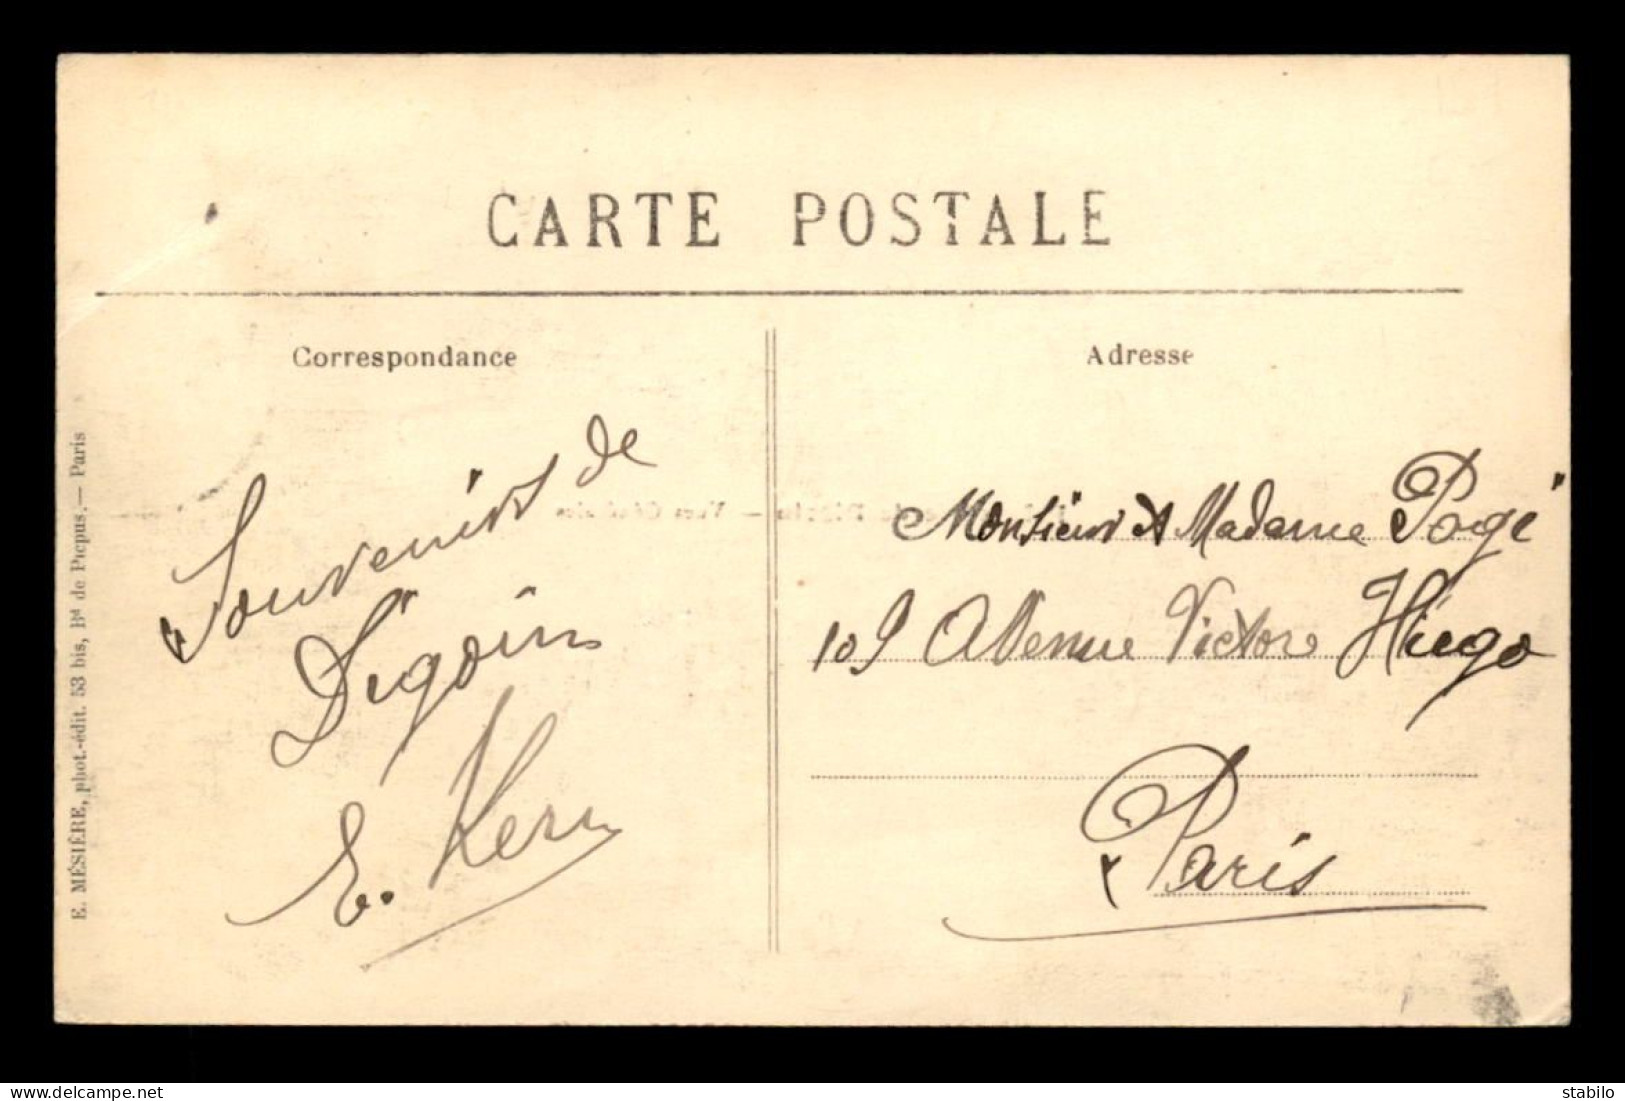 CARTE POSTALE
Correspondance
Adresse
Souvenirs de
Digoin
E. Kern
Monsieur et Madame Pogé
109 Avenue Victor Hugo
Paris
E. MÉSIÈRE, phot.-édit. 53 bis, Bd de Picpus.— Paris
delcampe.net
stabilo